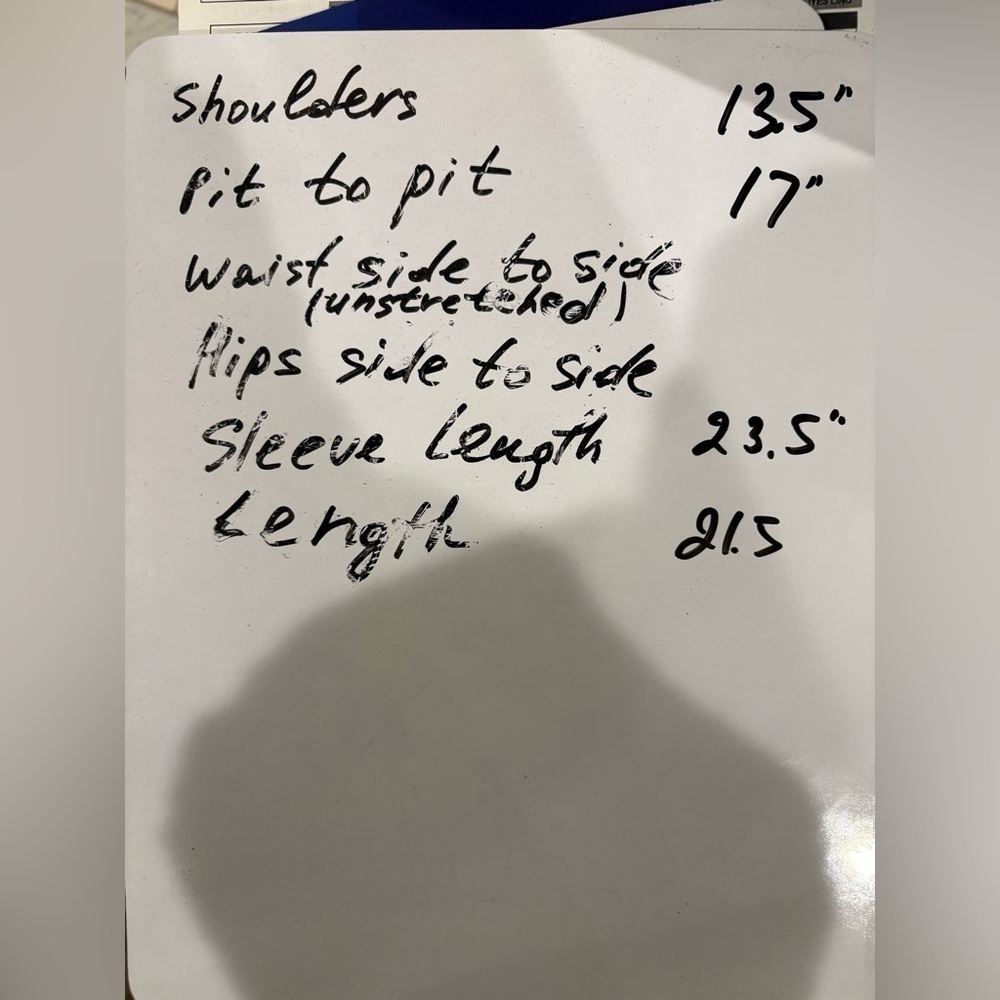 Shoulders 13.5"
Pit to pit 17"
Waist side to side
(unstretched)
Hips side to side
Sleeve Length 23.5"
Length 21.5